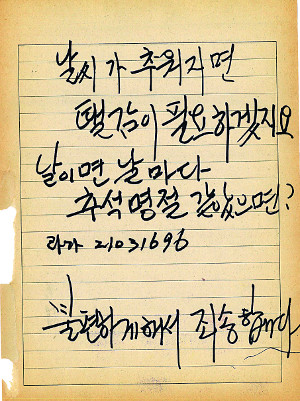 날씨가 추워지면
땔감이 필요하겠지요
날이면 날마다
추석명절 같았으면?
라가 21031696
불편하게해서 죄송합니다